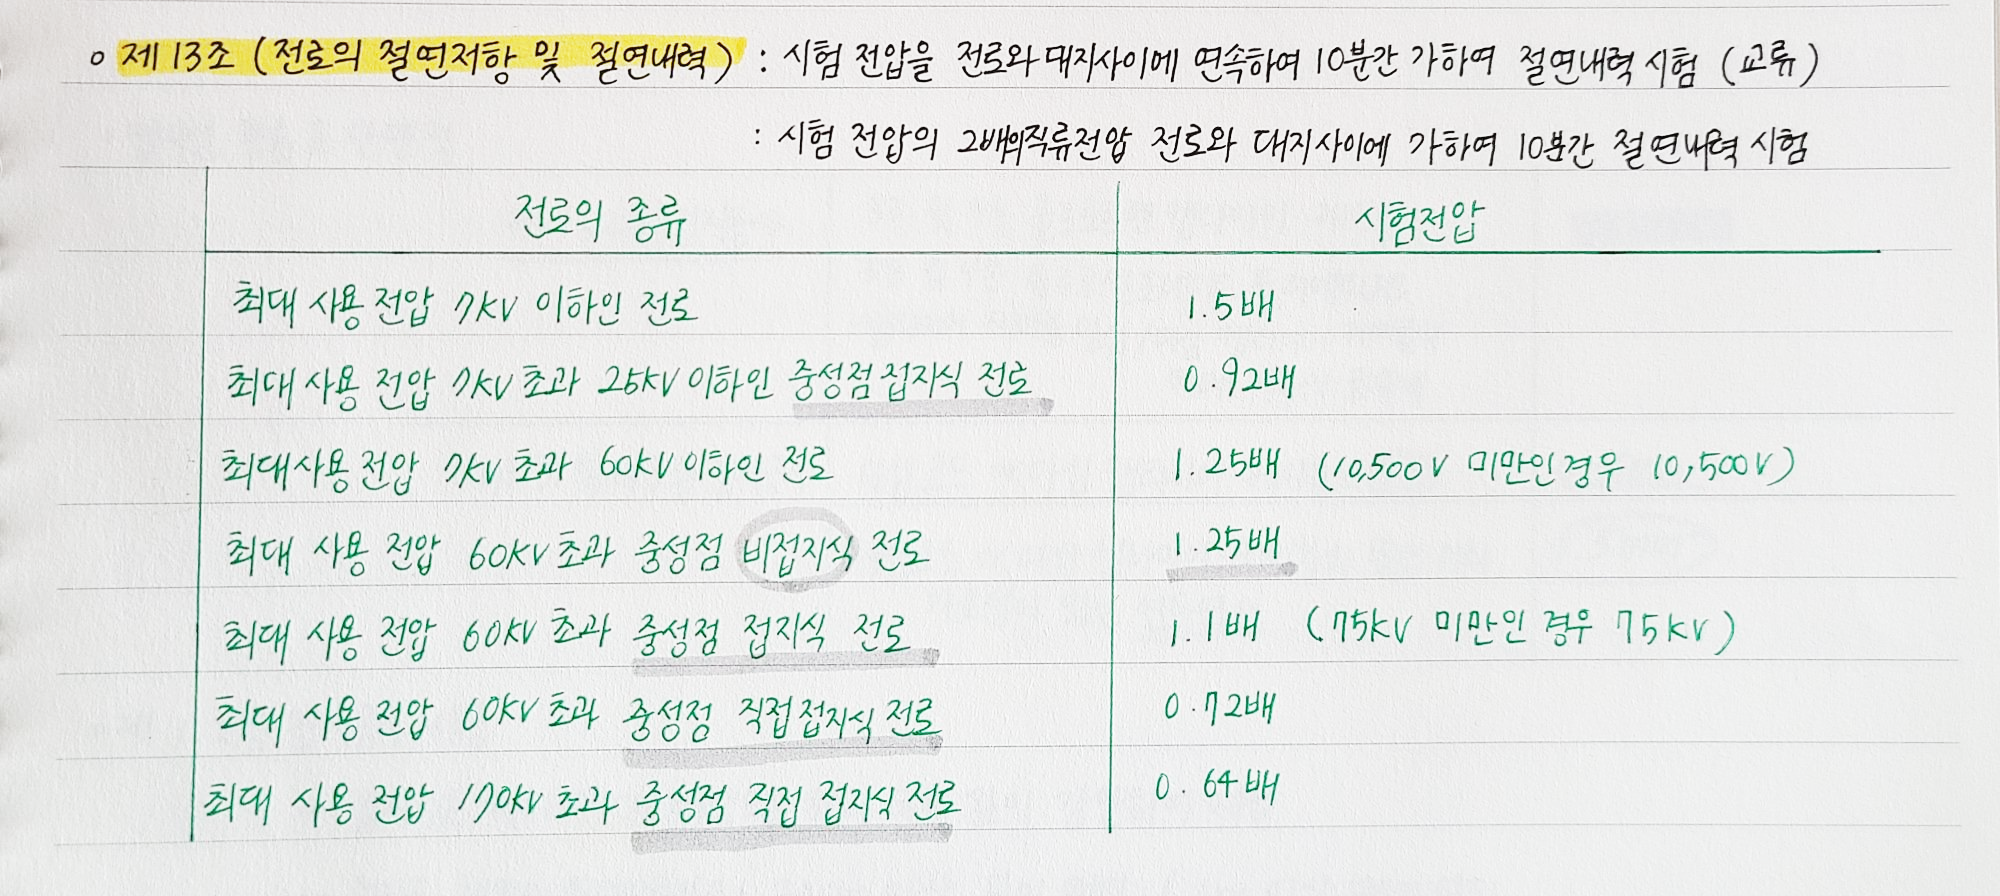 ○ 제13조 (전로의 절연저항 및 절연내력) : 시험 전압을 전로와 대지사이에 연속하여 10분간 가하여 절연내력 시험 (교류)
: 시험 전압의 2배의 직류전압 전로와 대지사이에 가하여 10분간 절연내력 시험
전로의 종류 시험전압
최대 사용 전압 7kV 이하인 전로 1.5배
최대 사용 전압 7kV 초과 25kV 이하인 중성점 접지식 전로 0.92배
최대사용전압 7kV 초과 60kV 이하인 전로 1.25배 (10,500V 미만인경우 10,500V)
최대 사용 전압 60kV 초과 중성점 비접지식 전로 1.25배
최대 사용 전압 60kV 초과 중성점 접지식 전로 1.1배 (75kV 미만인 경우 75kV)
최대 사용 전압 60kV 초과 중성점 직접접지식 전로 0.72배
최대 사용 전압 170kV 초과 중성점 직접 접지식 전로 0.64배